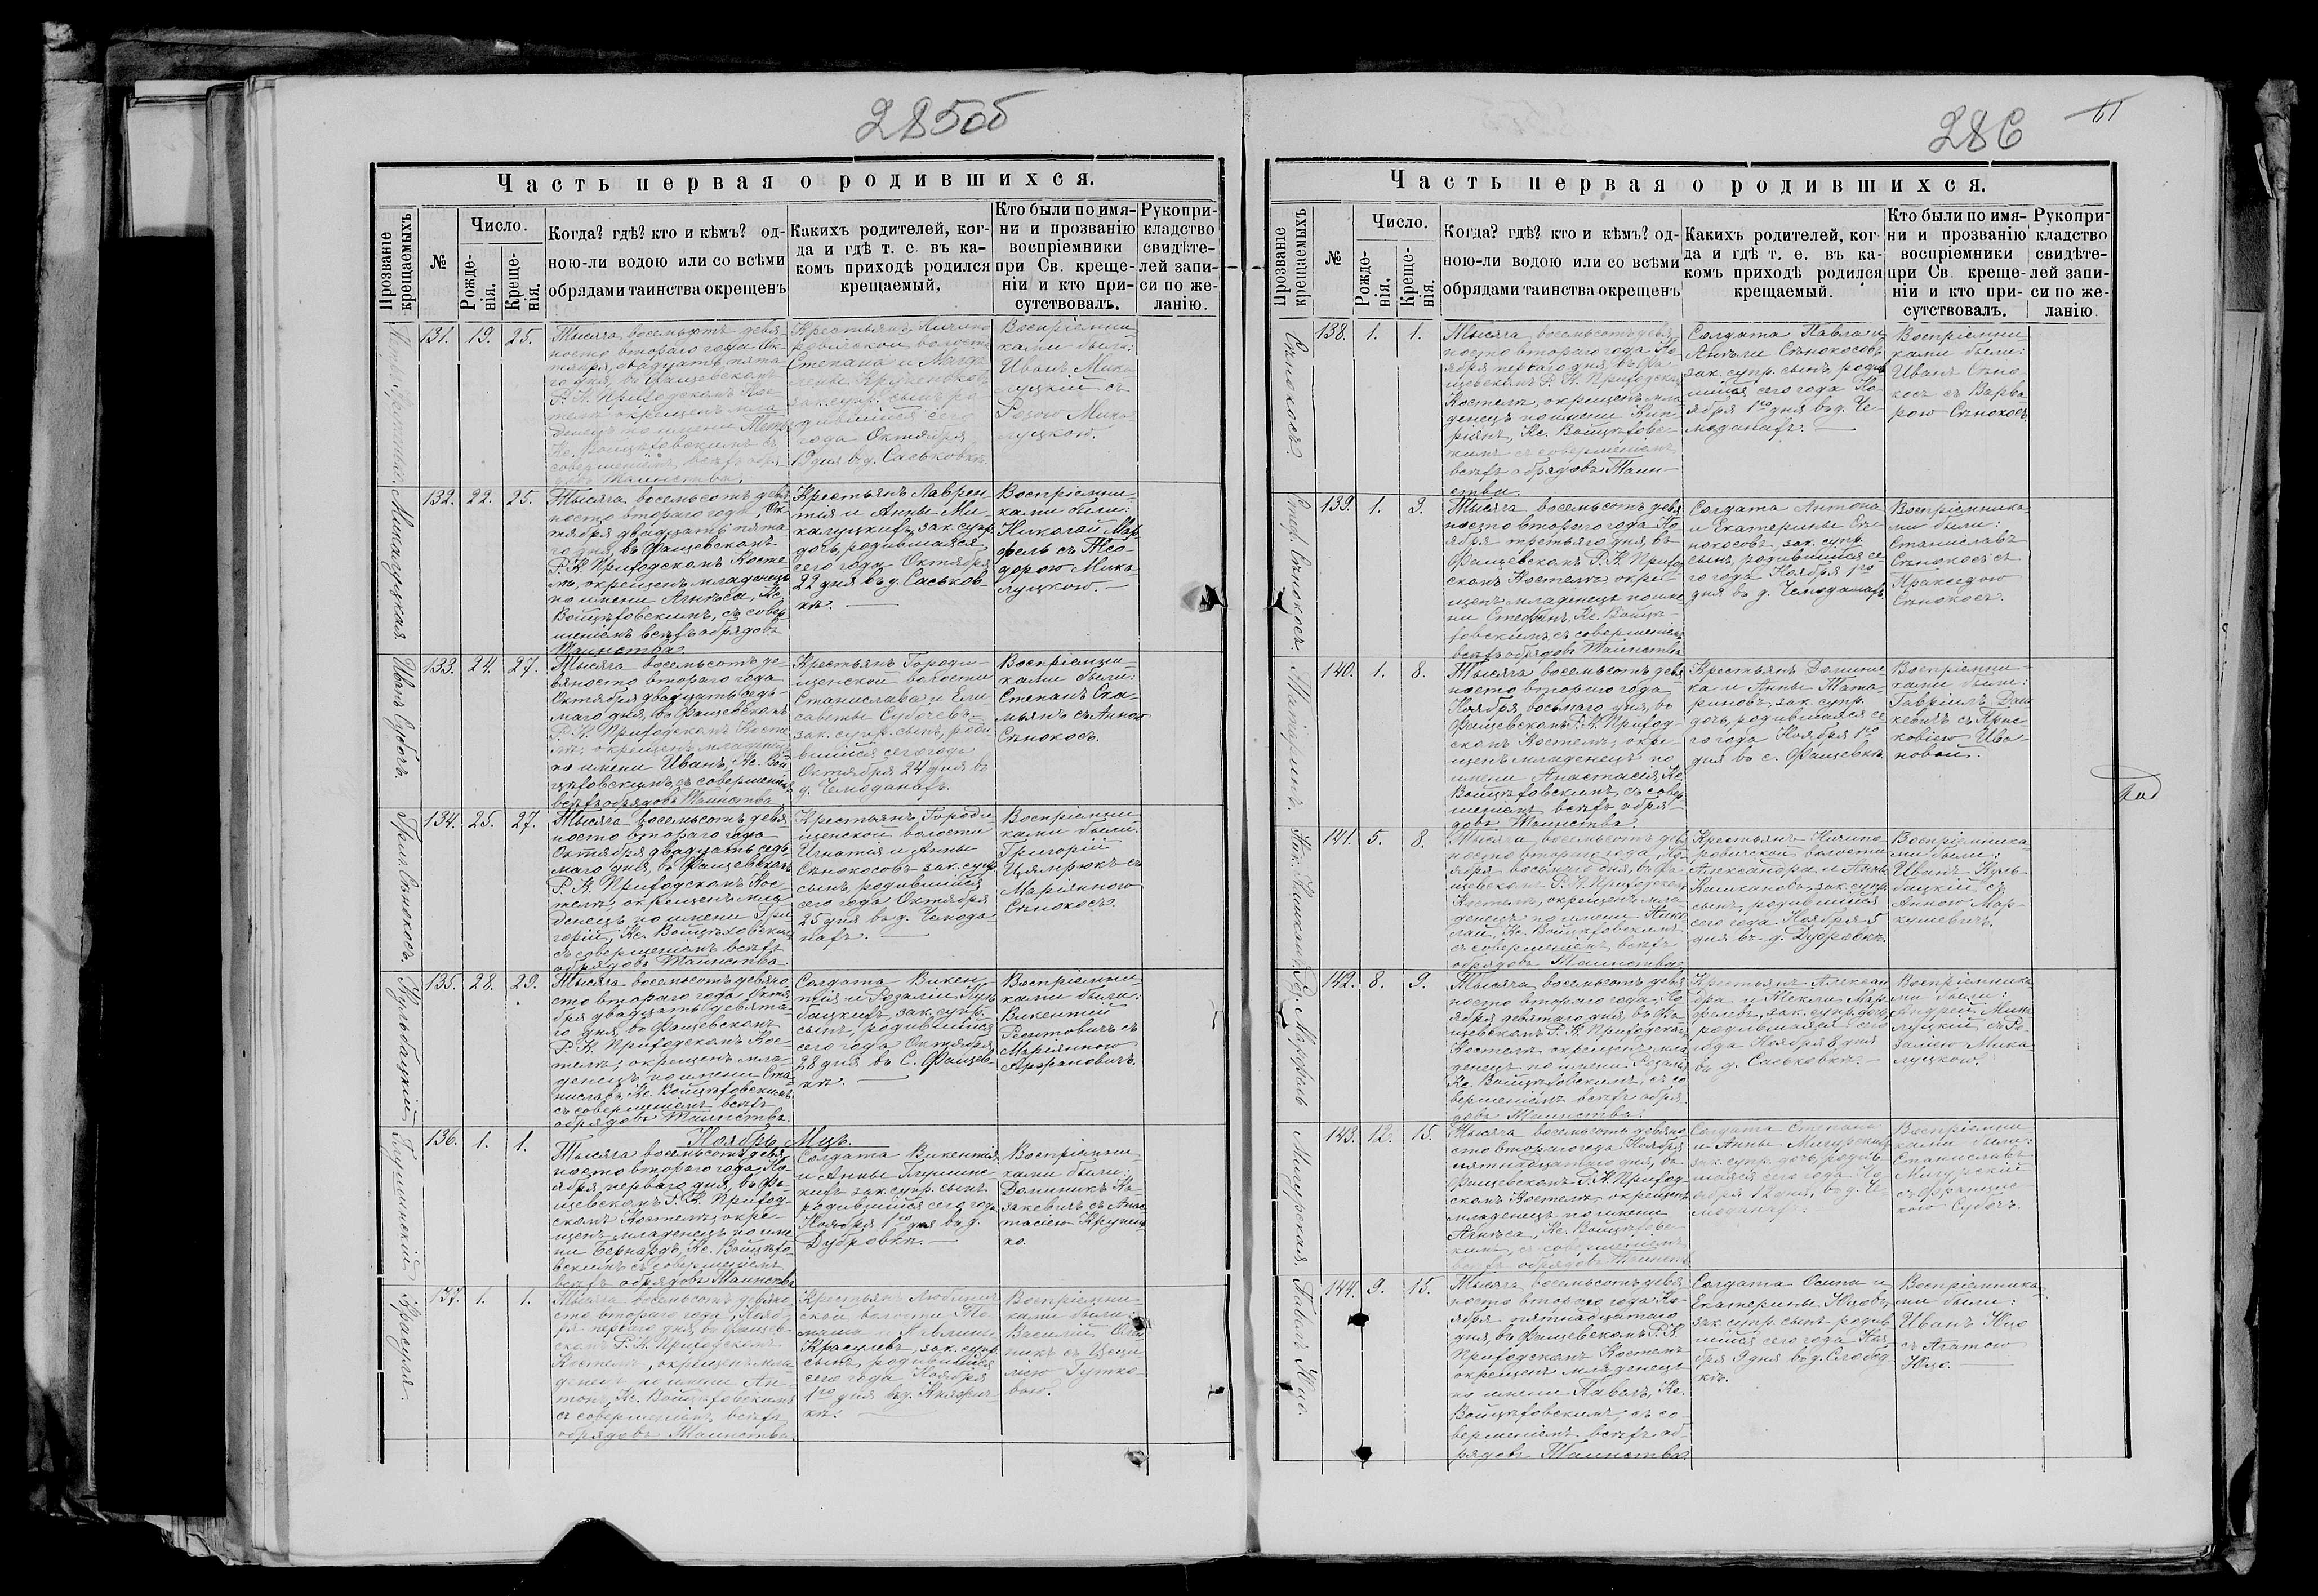 285об
Часть первая о родившихся.
Прозваніе крещаемыхъ
№
Число.
Рожде-
нія.
Креще-
нія.
Когда? гдѣ? кто и кѣмъ? од-
ною-ли водою или со всѣми
обрядами таинства окрещенъ
Какихъ родителей, ког-
да и гдѣ т. е. въ ка-
комъ приходѣ родился
крещаемый.
Кто были по имя-
ни и прозванію
воспріемники
при Св. креще-
ніи и кто при-
сутствовалъ.
Рукопри-
кладство
свидѣте-
лей запи-
си по же-
ланію.
131. 19. 25.
Тысяча восемьсотъ девя
носто втораго года Ок-
тября двадцать пята-
го дня, въ Фащевскомъ
Р. К. Приходскомъ Кос-
телѣ окрещенъ мла-
денецъ по имени
Кс. Войцѣховскимъ съ
совершеніемъ всѣхъ обря
довъ Таинства.
Крестьянъ Ничипо
ровичской волости
Степана и Магда
лены
зак. супр. сынъ ро-
дившійся сего
года Октября
19 дня въ д. Саськовкѣ.
Воспріемни
ками были:
Иванъ Мика
луцкій съ
Розою Мика-
луцкою.
Микалуцкая.
132. 22. 25.
Тысяча восемьсотъ девя
носто втораго года, Ок
тября двадцать пята-
го дня, въ Фащевскомъ
Р. К. Приходскомъ Косте-
лѣ, окрещенъ младенецъ
по имени Агнѣса, Кс.
Войцѣховскимъ, съ совер
шеніемъ всѣхъ обрядовъ
Таинства.
Крестьянъ Лаврен
тія и Анны Ми-
калуцкихъ зак. супр.
дочь, родившаяся
сего года Октября
22 дня въ д. Саськов-
кѣ.
Воспріемни-
ками были:
Николай Мар
фель съ Тео-
дорою Мика
луцкою.
Иванъ Субочъ.
133. 24. 27.
Тысяча восемьсотъ де-
вяносто втораго года
Октября двадцать седь-
маго дня, въ Фащевскомъ
Р. К. Приходскомъ Косте
лѣ, окрещенъ младенецъ
по имени Иванъ, Кс. Вой
цѣховскимъ, съ совершеніемъ
всѣхъ обрядовъ Таинства.
Крестьянъ Городи-
щенской волости
Станислава и Ели
саветы Субочевъ
зак. супр. сынъ, роди
вшійся сего года
Октября 24 дня въ
д. Чемоданахъ.
Воспріемни-
ками были:
Степанъ Ска-
мьянъ съ Анною
Сѣнокосъ.
Григ. Сѣнокосъ.
134. 25. 27.
Тысяча восемьсотъ девя
носто втораго года
Октября двадцать седь-
маго дня, въ Фащевскомъ
Р. К. Приходскомъ Кос-
телѣ, окрещенъ мла-
денецъ по имени Гри
горій, Кс. Войцѣховскимъ
съ совершеніемъ всѣхъ
обрядовъ Таинства.
Крестьянъ Городи
щенской волости
Игнатія и Анны
Сѣнокосовъ зак. супр.
сынъ, родившійся
сего года Октября
25 дня въ д. Чемода
нахъ.
Воспріемни-
ками были:
Григорій
Цямрюкъ съ
Маріянною
Сѣнокосъ.
Кульбацкій
135. 28. 29.
Тысяча восемьсотъ девяно
сто втораго года Октя
бря двадцать девята-
го дня, въ Фащевскомъ
Р. К. Приходскомъ Кос-
телѣ, окрещенъ мла-
денецъ по имени Ста
ниславъ, Кс. Войцѣховскимъ
съ совершеніемъ всѣхъ
обрядовъ Таинства.
Солдата Викен
тія и Розаліи Куль
бацкихъ, зак. супр.
сынъ, родившійся
сего года Октября
28 дня въ С. Фащев-
кѣ.
Воспріемни-
ками были:
Викентій
съ
Маріянною
Ноябрь Мцъ.
Глушинскій
136. 1. 1.
Тысяча восемьсотъ девя
носто втораго года Но
ября перваго дня, въ Фа-
щевскомъ Р. К. Приход-
скомъ Костелѣ, окре-
щенъ младенецъ по име
ни Бернардъ, Кс. Войцѣхо
вскимъ съ совершеніемъ
всѣхъ обрядовъ Таинства
Солдата Викентія
и Анны Глушинс-
кихъ зак. супр. сынъ
родившійся сего года
Ноября 1го дня въ д.
Дубровкѣ.
Воспріемни-
ками были:
Доминикъ
съ Анас-
тасіею Крупень
ко.
Красуля.
137. 1. 1.
Тысяча восемьсотъ девяно-
сто втораго года, Нояб-
ря перваго дня, въ Фащев-
скомъ Р. К. Приходскомъ
Костелѣ, окрещенъ мла-
денецъ по имени Ан-
тонъ, Кс. Войцѣховскимъ
съ совершеніемъ всѣхъ
обрядовъ Таинства.
Крестьянъ
ской волости
и
Красулевъ, зак. супр.
сынъ, родившійся
сего года Ноября
1го дня въ д.
Воспріемни-
ками были:
Василій
съ Цеци
ліею Гутко-
вою.
286
61
Часть первая о родившихся.
Прозваніе крещаемыхъ
№
Число.
Рожде-
нія.
Креще-
нія.
Когда? гдѣ? кто и кѣмъ? од-
ною-ли водою или со всѣми
обрядами таинства окрещенъ
Какихъ родителей, ког-
да и гдѣ т. е. въ ка-
комъ приходѣ родился
крещаемый.
Кто были по имя-
ни и прозванію
воспріемники
при Св. креще-
ніи и кто при-
сутствовалъ.
Рукопри-
кладство
свидѣте-
лей запи-
си по же-
ланію.
Сѣнокосъ.
138. 1. 1.
Тысяча восемьсотъ девя
носто втораго года Но
ября перваго дня, въ Фа-
щевскомъ Р. К. Приходскомъ
Костелѣ, окрещенъ мла
денецъ по имени Кип-
ріянъ, Кс. Войцѣховс-
кимъ съ совершеніемъ
всѣхъ обрядовъ Таин-
ства.
Солдата Павла и
Анѣли Сѣнокосовъ
зак. супр. сынъ, роди
вшійся сего года Но-
ября 1го дня въ д. Че-
моданахъ.
Воспріемни
ками были:
Иванъ Сѣно
косъ съ Варва
рою Сѣнокосъ
Стеф. Сѣнокосъ.
139. 1. 3.
Тысяча восемьсотъ девя
носто втораго года Но-
ября третьяго дня, въ
Фащевскомъ Р. К. Приход
скомъ Костелѣ, окре-
щенъ младенецъ по име
ни Стефанъ, Кс. Войцѣ-
ховскимъ съ совершеніемъ
всѣхъ обрядовъ Таинства
Солдата Антона
и Екатерины Сѣ-
нокосовъ, зак. супр.
сынъ, родившійся се-
го года Ноября 1го
дня въ д. Чемоданахъ.
Воспріемника-
ми были:
Станиславъ
Сѣнокосъ съ
Праксдою
Сѣнокосъ.
140. 1. 8.
Тысяча восемьсотъ девя
носто втораго года
Ноября, восьмаго дня, въ
Фащевскомъ Р. К. Приход-
скомъ Костелѣ, окре-
щенъ младенецъ по
имени Анастасія, Кс.
Войцѣховскимъ, съ совер
шеніемъ всѣхъ обря-
довъ Таинства.
Крестьянъ Домини
ка и Анны Тата-
риновъ, зак. супр.
дочь, родившаяся се-
го года Ноября 1го
дня въ с. Фащевкѣ.
Воспріемни-
ками были:
Гавріилъ Даш
кевичъ съ Прас-
ковіею Ива-
новой.
141. 5. 8.
Тысяча восемьсотъ девя
носто втораго года, Но-
ября восьмаго дня, въ Фа-
щевскомъ Р. К. Приходскомъ
Костелѣ, окрещенъ мла-
денецъ по имени Нико
лай, Кс. Войцѣховскимъ
съ совершеніемъ всѣхъ
обрядовъ Таинства
Крестьянъ Ничипо
ровичской волости
Александра и Анны
зак. супр.
сынъ, родившійся
сего года Ноября 5
дня въ д. Дубровкѣ.
Воспріемника-
ми были:
Иванъ Куль-
бацкій съ
Анною Мар-
кушевичъ.
Роз. Марфель
142. 8. 9.
Тысяча восемьсотъ девя
носто втораго года, Но
ября девятаго дня, въ Фа-
щевскомъ Р. К. Приходскомъ
Костелѣ, окрещенъ мла
денецъ по имени Розалія
Кс. Войцѣховскимъ, съ со
вершеніемъ всѣхъ обря
довъ Таинства.
Крестьянъ Алексан
дра и Теклы Мар
фелевъ, зак. супр. дочь
родившаяся сего
года Ноября 8 дня
въ д. Саськовкѣ.
Воспріемника
ми были:
Андрей Мика
луцкій съ Ро-
заліею Мика
луцкою.
Мигурская.
143. 12. 15.
Тысяча восемьсотъ девяно
сто втораго года, Ноября
пятнадцатаго дня, въ
Фащевскомъ Р. К. Приход-
скомъ Костелѣ, окрещенъ
младенецъ по имени
Агнѣса, Кс. Войцѣховс-
кимъ, съ совершеніемъ
всѣхъ обрядовъ Таинства
Солдата Степана
и Анны Мигурскихъ
зак. супр. дочь, родив
шаяся сего года Но-
ября 12 дня, въ д. Че-
моданахъ.
Воспріемни
ками были:
Станиславъ
Мигурскій
съ Францис
кою Субочъ.
Павелъ Юцо.
144. 9. 15.
Тысяча восемьсотъ девя
носто втораго года Но-
ября пятнадцатаго
дня, въ Фащевскомъ Р. К.
Приходскомъ Костелѣ
окрещенъ младенецъ
по имени Павелъ, Кс.
Войцѣховскимъ, съ со-
вершеніемъ всѣхъ об-
рядовъ Таинства.
Солдата Осипа и
Екатерины Юцовъ,
зак. супр. сынъ родив
шійся сего года Ноя
бря 9 дня въ д. Слобод
кѣ.
Воспріемника-
ми были:
Иванъ Юцо
съ Агатою
Юцо.